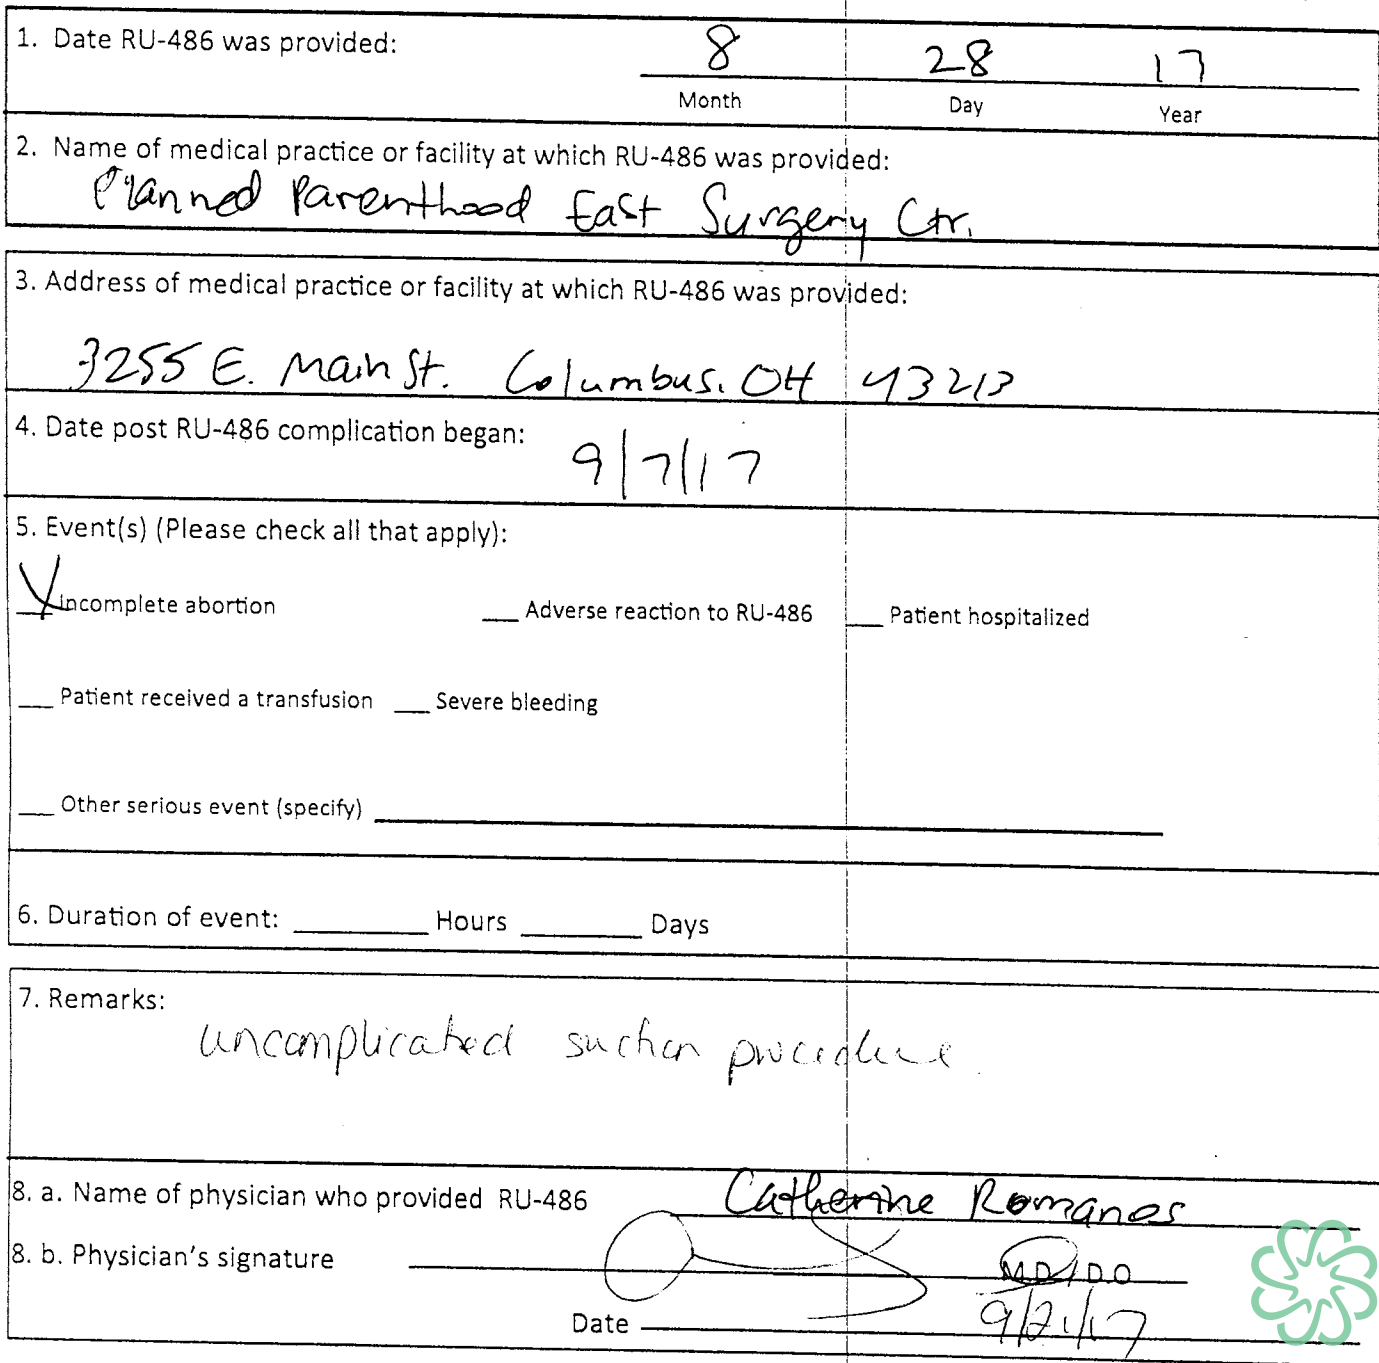 1. Date RU-486 was provided:
8 28 17
Month Day Year
2. Name of medical practice or facility at which RU-486 was provided:
Planned Parenthood East Surgery Ctr.
3. Address of medical practice or facility at which RU-486 was provided:
3255 E. Main St. Columbus, OH 43213
4. Date post RU-486 complication began: 9/7/17
5. Event(s) (Please check all that apply):
Incomplete abortion ___ Adverse reaction to RU-486 ___ Patient hospitalized
___ Patient received a transfusion ___ Severe bleeding
___ Other serious event (specify)
6. Duration of event: ________ Hours ________ Days
7. Remarks:
uncomplicated suction procedure.
8. a. Name of physician who provided RU-486 Catherine Romanos
8. b. Physician's signature
MD/DO
Date 9/21/17